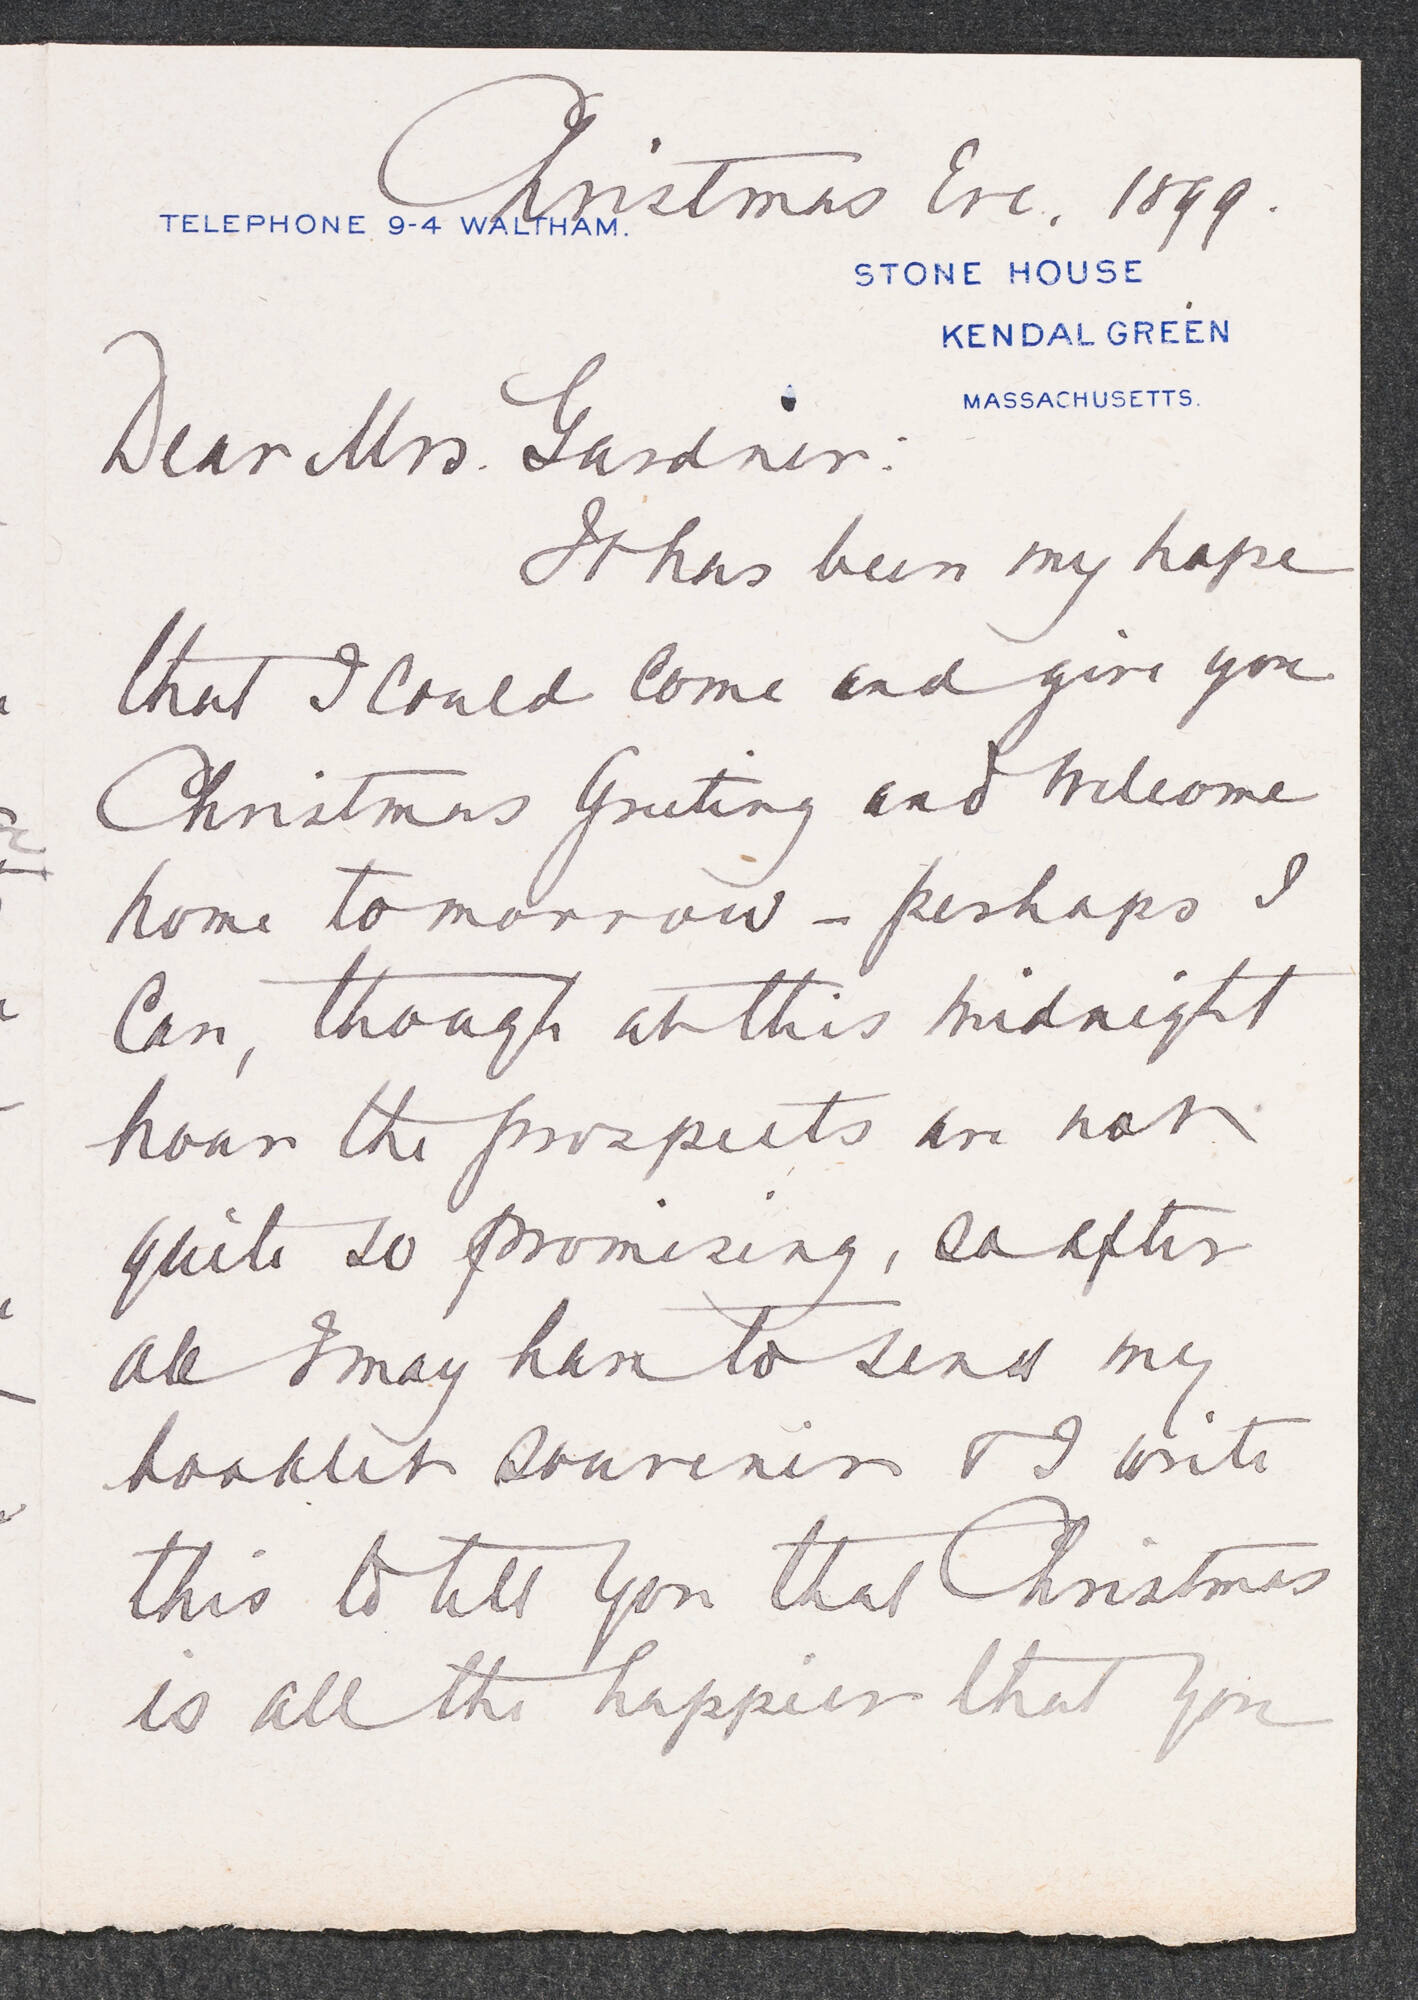 Christmas Eve. 1899.
TELEPHONE 9-4 WALTHAM.
STONE HOUSE
KENDAL GREEN
MASSACHUSETTS.
Dear Mrs. Gardner:
It has been my hope
that I could come and give you
Christmas Greeting and welcome
home tomorrow – perhaps I
can, though at this midnight
hour the prospects are not
quite so promising, so after
all I may have to send my
booklet souvenir & I write
this to tell you that Christmas
is all the happier that you